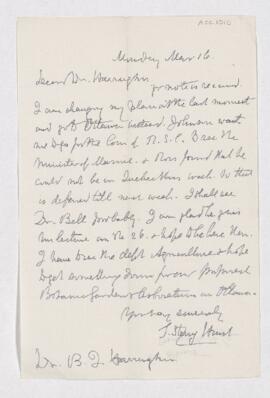 ACC 1210
Monday Mar 16.
Dear Dr. Harrington
yr note is received.
I am changing my plans at the last moment
and go to Ottawa instead. Johnson wants
me to go for the Com of R.S.C. to see the
Minister of Marine. & Ross found that he
could not be in Quebec this week. So that
is deferred till next week. I shall see
Dr. Bell probably. I am glad he gives
his lecture on the 26. & hope to be here then.
I have to see the dept Agriculture & hope
to get something done for our proposed
Botanic Garden & Arboretum in Ottawa.
Yours sincerely
T. Sterry Hunt
Dr. B. J. Harrington